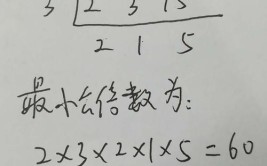 3 2 3 15
2 1 5
最小公倍数为:
2×3×2×1×5=60